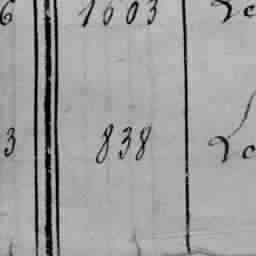 6 1603
3 838